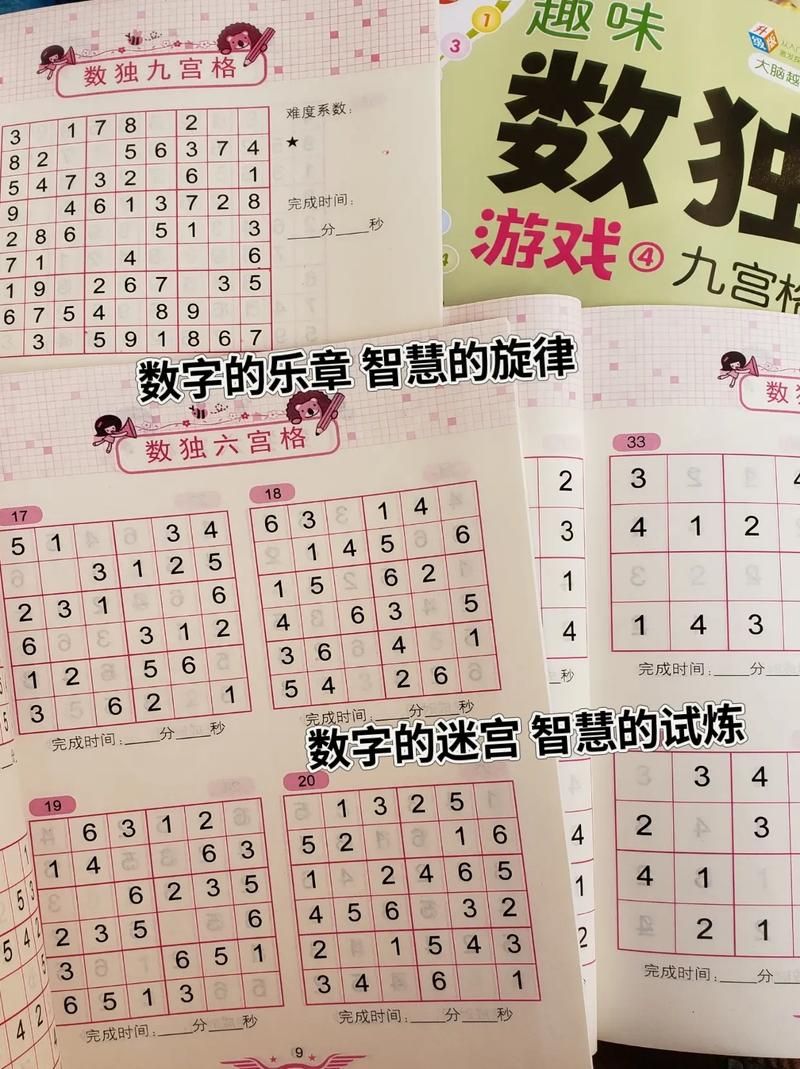 数独九宫格
难度系数:
★
完成时间:
____分____秒
3 1 7 8 2
8 2 5 6 3 7 4
5 4 7 3 2 6 1
9 4 6 1 3 7 2 8
2 8 6 5 1 3
7 1 4 6
1 9 2 6 7 3 5
6 7 5 4 8 9
3 5 9 1 8 6 7
趣味
数独
游戏④
九宫格
大脑越
1
3
数字的乐章 智慧的旋律
数独六宫格
17
5 1 3 4
3 1 2 5
2 3 1 6
6 3 1 2
1 2 5 6
3 6 2 1
完成时间:____分____秒
18
6 3 1 4
1 4 5 6
1 5 6 2
4 6 3 5
3 6 4 1
5 4 2 6
完成时间:____分____秒
数字的迷宫 智慧的试炼
19
6 3 1 2
1 4 6 3
6 2 3 5
2 3 5 6
3 6 5 1
6 5 1 3
完成时间:____分____秒
20
1 3 2 5
5 2 1 6
1 2 4 6 5
4 5 6 3 2
2 1 5 4 3
3 4 6 1
完成时间:____分____秒
9
2
3
1
4
秒
4
1
2
数独
33
3 4
4 1 2
1 4 3
完成时间:____分
3 4
2 3
4 1
2 1
完成时间:____分